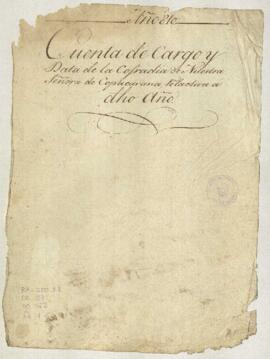 Año 810
Cuenta de Cargo y
Data de la Cofradia de Nuestra
Señora de Copacavana relativa a
dho Año